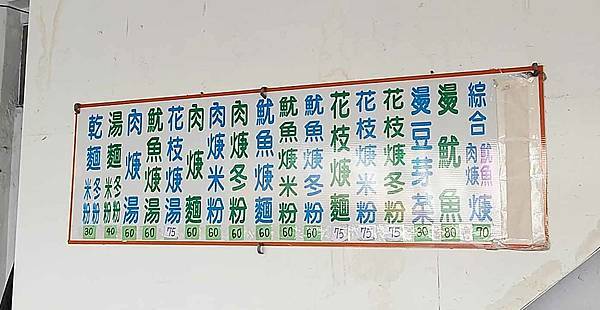 綜合魷魚肉焿焿 70
燙魷魚 80
燙豆芽菜 30
花枝焿冬粉 75
花枝焿米粉 75
花枝焿麵 75
魷魚焿冬粉 60
魷魚焿米粉 60
魷魚焿麵 60
肉焿冬粉 60
肉焿米粉 60
肉焿麵 60
花枝焿湯 75
魷魚焿湯 60
肉焿湯 60
湯麵冬粉米粉 40
乾麵冬粉米粉 30